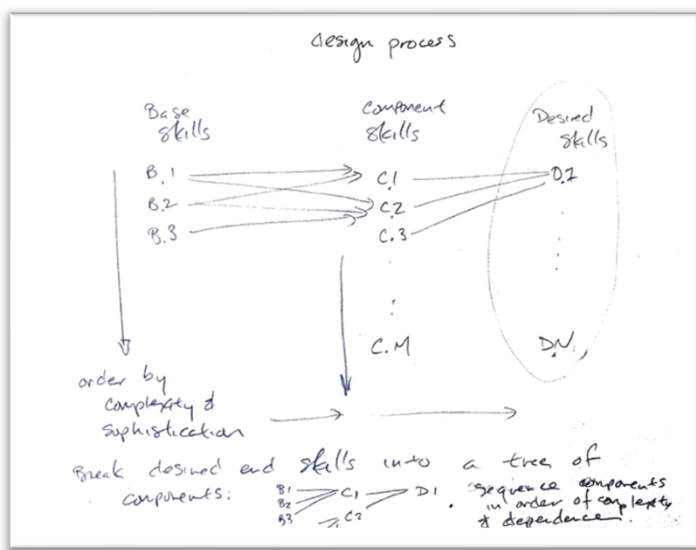 design process
Base skills
Component skills
Desired skills
B.1
C.1
D.1
B.2
C.2
B.3
C.3
C.M
D.N
order by
complexity &
sophistication
Break desired end skills into a tree of
components:
B1
C1
D1
B2
B3
C2
. sequence components
in order of complexity
& dependence.